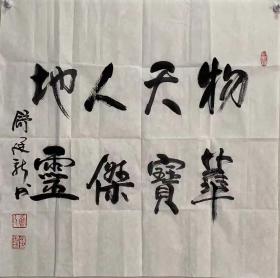 物華
天寶
人傑
地靈